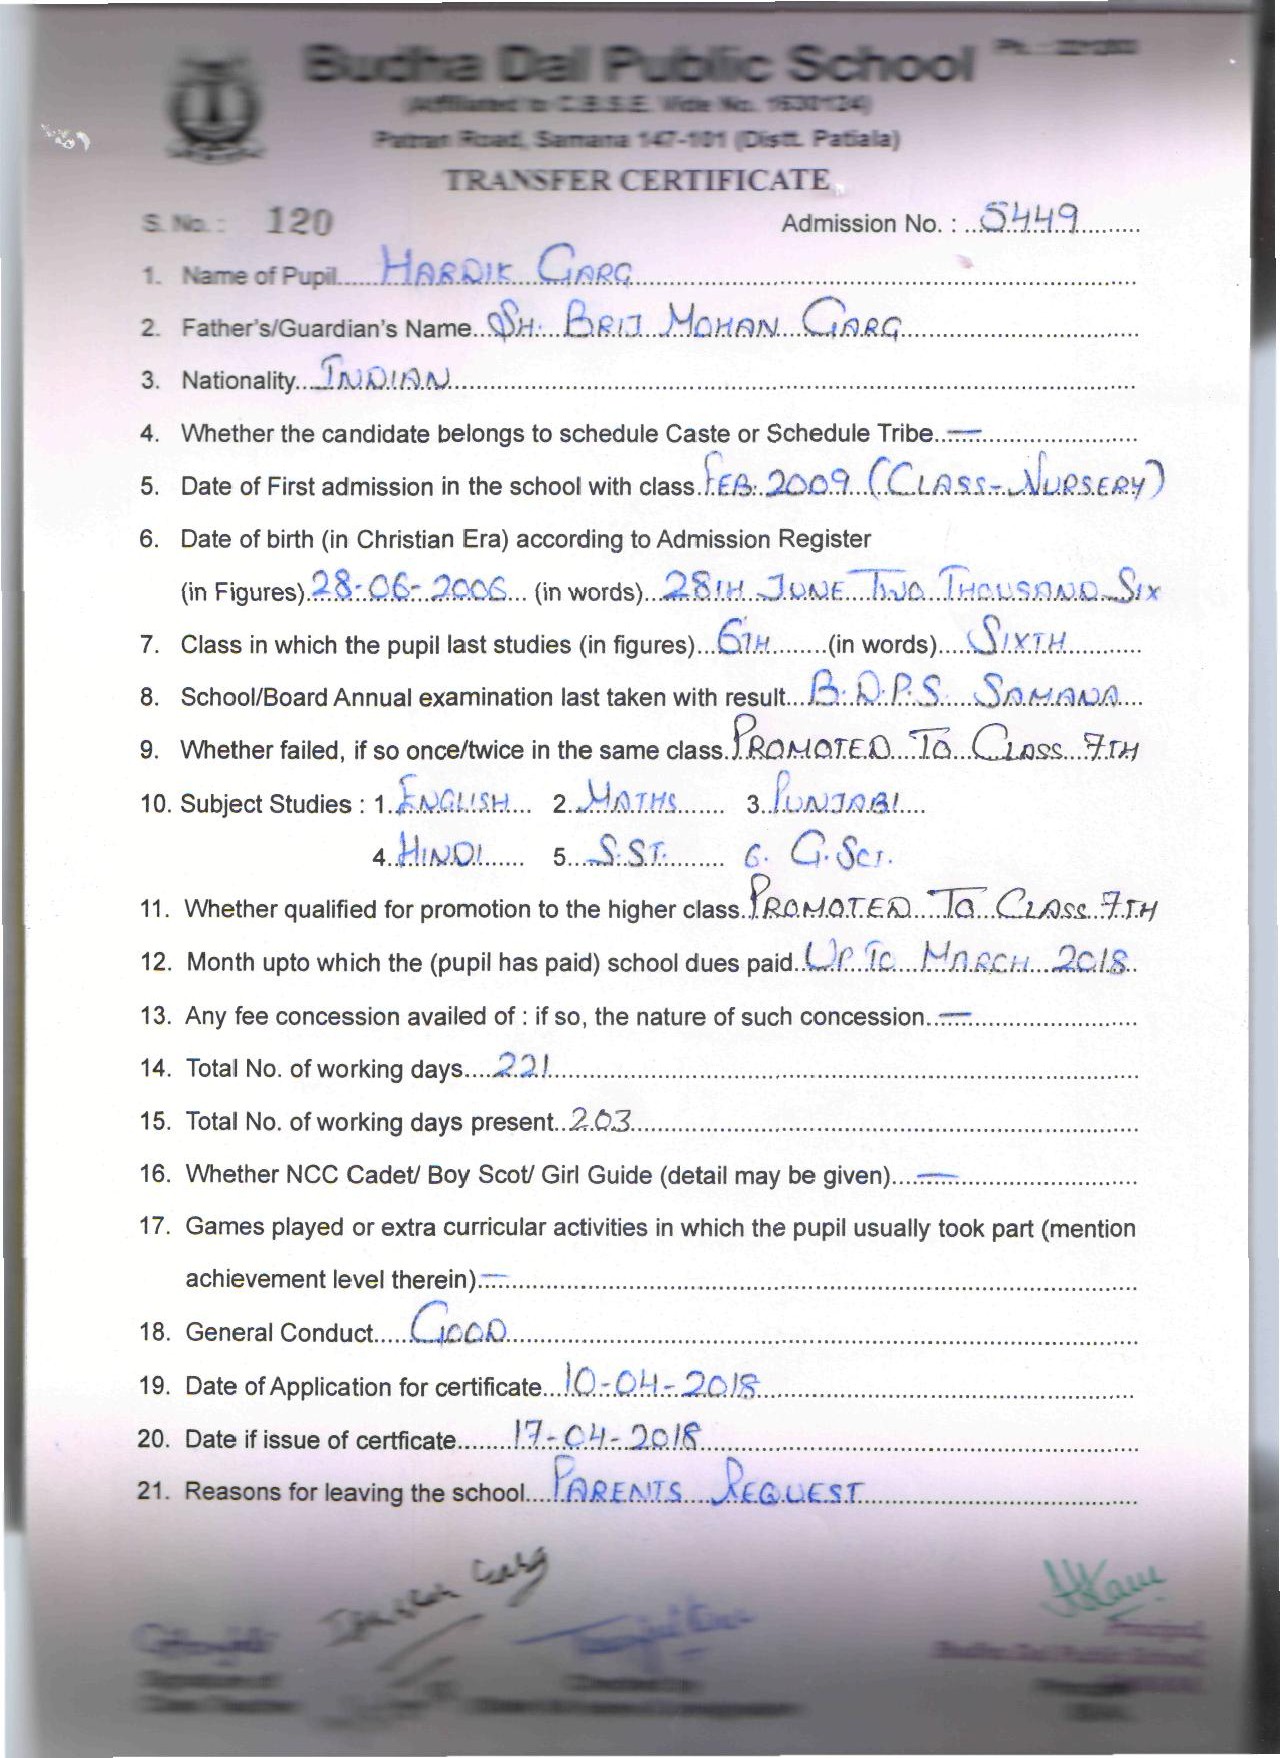 Budha Dal Public School
(Affiliated to C.B.S.E. Vide No. 1630124)
Patran Road, Samana 147-101 (Distt. Patiala)
TRANSFER CERTIFICATE
S. No. : 120 Admission No. : 5449
1. Name of Pupil HARDIK GARG
2. Father's/Guardian's Name SH. BRIJ MOHAN GARG
3. Nationality INDIAN
4. Whether the candidate belongs to schedule Caste or Schedule Tribe —
5. Date of First admission in the school with class FEB. 2009 (CLASS-NURSERY)
6. Date of birth (in Christian Era) according to Admission Register
(in Figures) 28-06-2006 (in words) 28TH JUNE TWO THOUSAND SIX
7. Class in which the pupil last studies (in figures) 6TH (in words) SIXTH
8. School/Board Annual examination last taken with result B.D.P.S. SAMANA
9. Whether failed, if so once/twice in the same class PROMOTED TO CLASS 7TH
10. Subject Studies : 1. ENGLISH 2. MATHS 3. PUNJABI
4. HINDI 5. S.ST. 6. G.Sci.
11. Whether qualified for promotion to the higher class PROMOTED TO CLASS 7TH
12. Month upto which the (pupil has paid) school dues paid UP TO MARCH 2018
13. Any fee concession availed of : if so, the nature of such concession —
14. Total No. of working days 221
15. Total No. of working days present 203
16. Whether NCC Cadet/ Boy Scot/ Girl Guide (detail may be given) —
17. Games played or extra curricular activities in which the pupil usually took part (mention
achievement level therein) —
18. General Conduct GOOD
19. Date of Application for certificate 10-04-2018
20. Date if issue of certficate 17-04-2018
21. Reasons for leaving the school PARENTS REQUEST
Garg
Principal
Budha Dal Public School
Signature of
Class Teacher